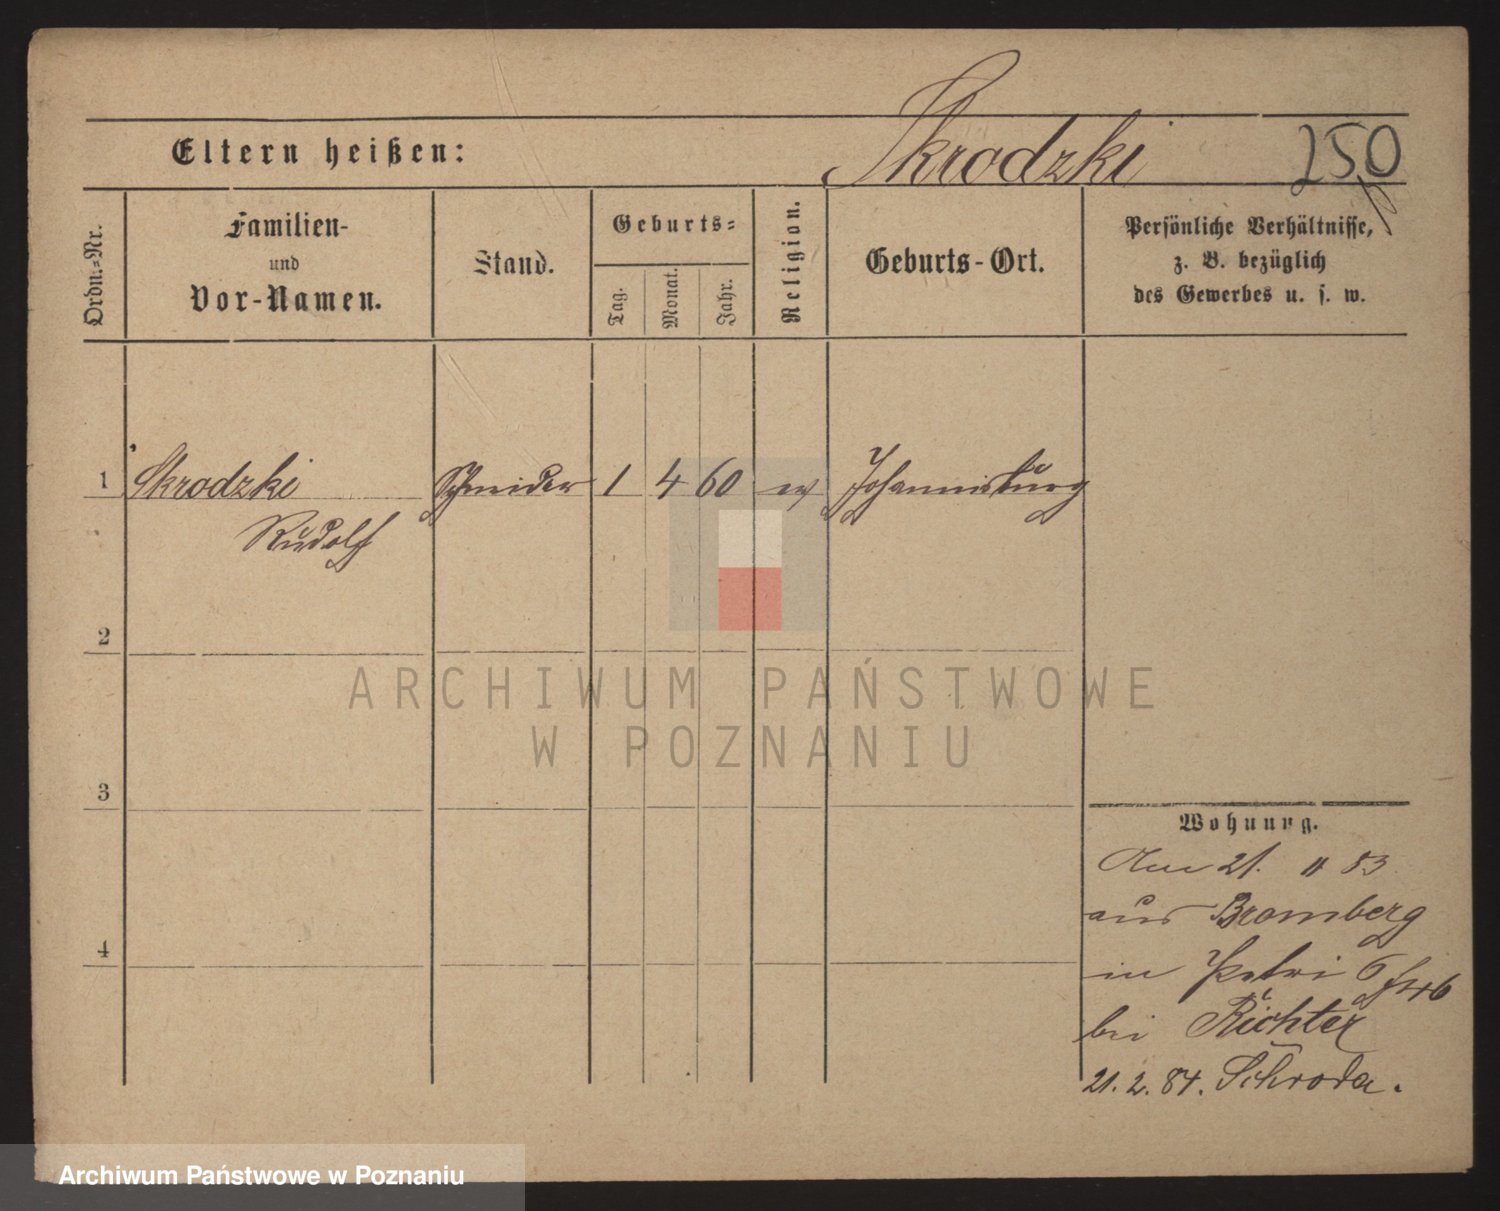 Skrodzki 250
Eltern heißen:
Ordn.=Nr.
Familien-
und
Vor-Namen.
Stand.
Geburts=
Tag.
Monat.
Jahr.
Religion.
Geburts-Ort.
Persönliche Verhältnisse,
z. B. bezüglich
des Gewerbes u. s. w.
1 Skrodzki Schneider 1 4 60 ev Johannisburg
Rudolf
2
3
4
Wohnung.
Am 21. 11 83
aus Bromberg
in Petri 6
bei Richter
21. 2. 84. Schroda.
ARCHIWUM PAŃSTWOWE
W POZNANIU
Archiwum Państwowe w Poznaniu